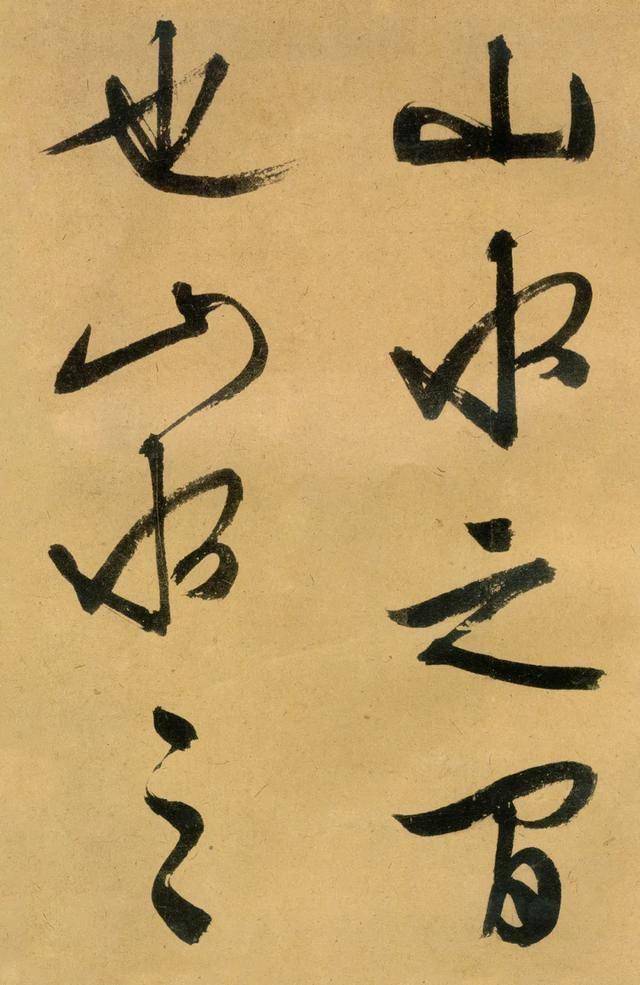 山水之間
也山水之